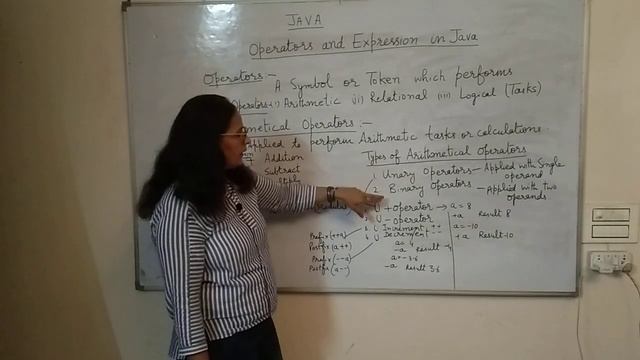 JAVA
Operators and Expression in Java
Operators:-
A Symbol or Token which performs
Operators:- i) Arithmetic (ii) Relational (iii) Logical (Tasks)
metical Operators:-
Applied to perform Arithmetic tasks or calculations.
Addition
Subtract
Types of Arithmetical Operators
1. Unary Operators - Applied with Single operand
2. Binary Operators - Applied with two operands
U + operator → a = 8
+a Result 8
U - operator
a = -10
+a Result -10
U Increment ++
U Decrement --
Prefix (++a)
Postfix (a++)
Prefix (--a)
Postfix (a--)
a = 4
-a Result -4
a = -3.6
-a Result 3.6